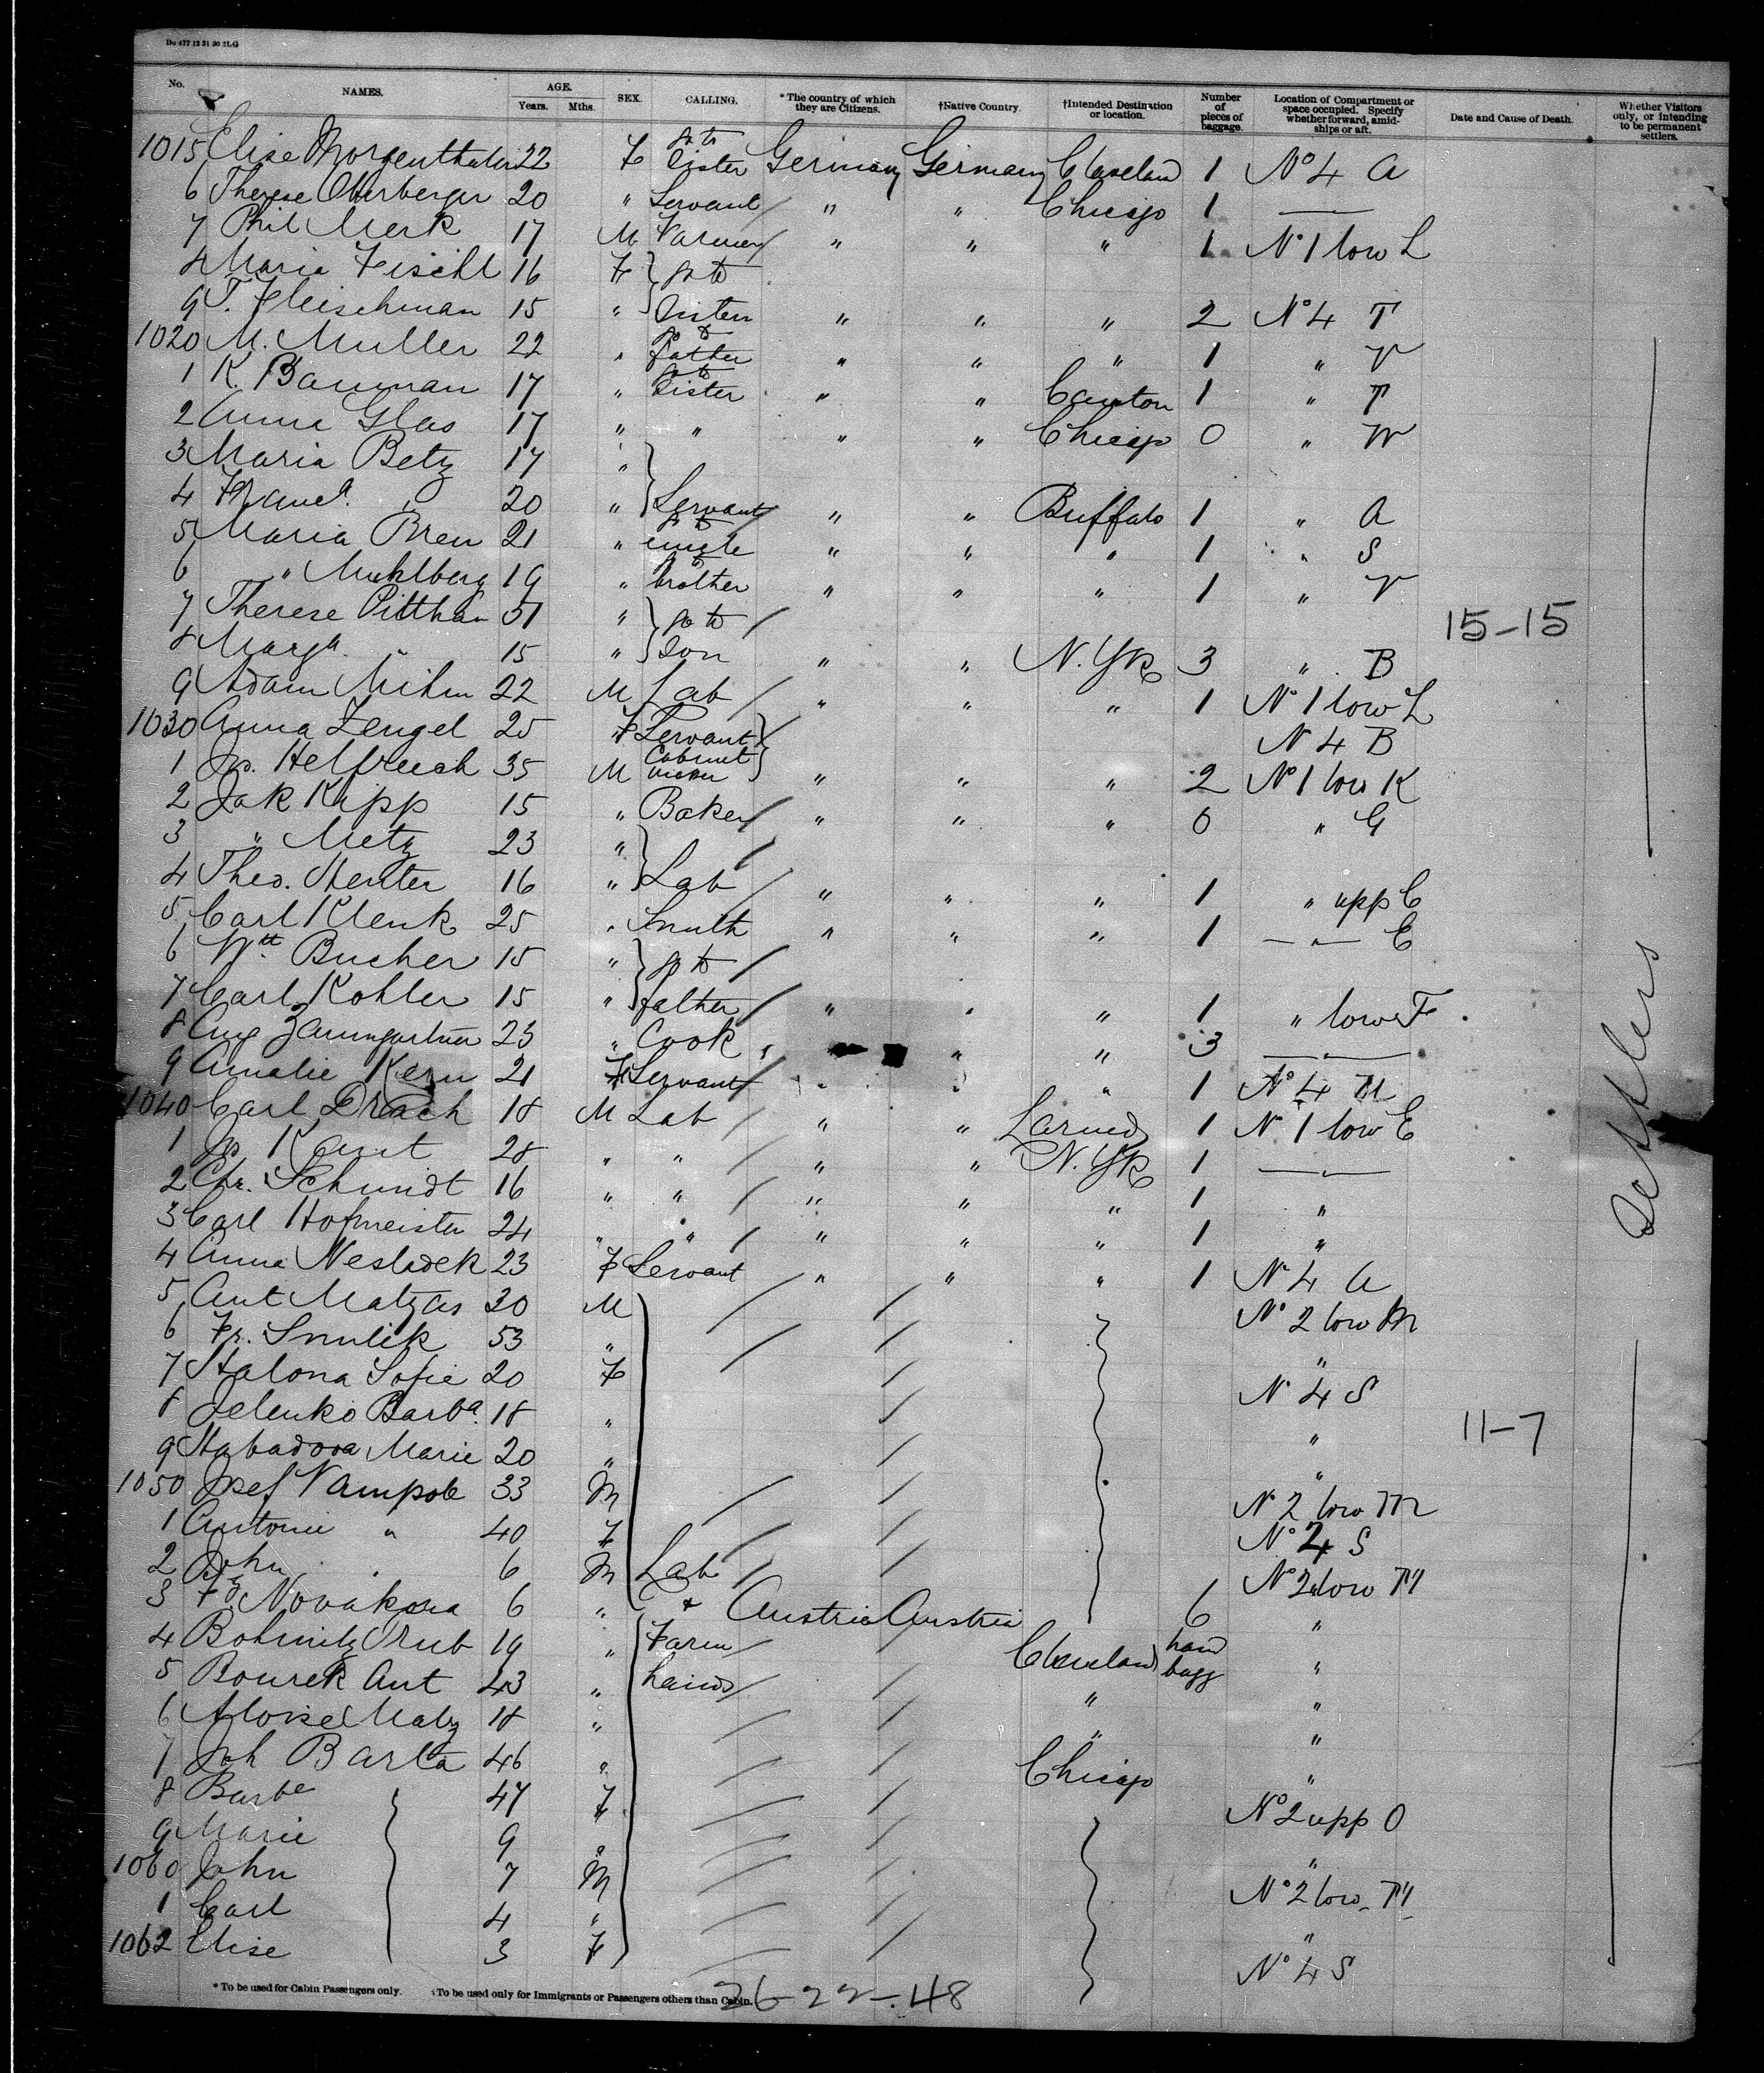 Du 477 12 31 90 2LG
No. NAMES. AGE. Years. Mths. SEX. CALLING. * The country of which they are Citizens. †Native Country. †Intended Destination or location. Number of pieces of baggage. Location of Compartment or space occupied. Specify whether forward, amidships or aft. Date and Cause of Death. Whether Visitors only, or intending to be permanent settlers.
1015 Elise Morgenthaler 22 F go to Sister Germany Germany Cleveland 1 No 4 A
6 Therese Oberberger 20 " Servant " " Chicago 1 —
7 Phil Merk 17 M Farmer " " " 1 No 1 low L
8 Maria Fischl 16 F } go to
9 T. Fleischman 15 " Sister " " " 2 No 4 T
1020 M. Muller 22 " go to father " " " 1 " V
1 K. Bauman 17 " go to Sister " " Canton 1 " T
2 Anna Glas 17 " " " " Chicago 0 " W
3 Maria Betz 17 " }
4 " 20 " Servant " " Buffalo 1 " A
5 Maria Bren 21 " go to uncle " " " 1 " S
6 " Muhlberg 19 " go to brother " " " 1 " V
7 Therese Pitthan 51 " } go to
8 Marga. " 15 " Son " " N. Yk 3 " B
9 Adam Mihm 22 M Lab " " " 1 No 1 low L
1030 Anna Zengel 25 F Servant } N 4 B
1 Jos. Helfreich 35 M Cabinet maker " " " 2 No 1 low K
2 Jak Kipp 15 " Baker " " " 0 " G
3 " Metz 23 " }
4 Theo. Henter 16 " Lab " " " 1 " upp C
5 Carl Klenk 25 " Smith " " " 1 — " — C
6 Wm. Bucher 15 " } go to
7 Carl Kohler 15 " father " " " 1 " low F
8 Aug Baumgartner 23 " Cook " " " 3 —
9 Amalie Kern 21 F Servant " " " 1 No 4 U
1040 Carl Drach 18 M Lab " " Larned 1 N 1 low E
1 Jos Kaut 28 " " " " N. Yk 1 —
2 Chr. Schmidt 16 " " " " " 1 "
3 Carl Hofmeister 24 " " " " " 1 "
4 Anna Nesladek 23 F Servant " " " 1 N 4 A
5 Ant Matzas 30 M No 2 low M
6 Fr. Smulik 53 " "
7 Halona Sofie 20 F N 4 S
8 Jelenko Barba. 18 " "
9 Habadova Marie 20 " "
1050 Josef Vampole 33 M N 2 low M
1 Antonie " 40 F No 4 S
2 John " 6 M Lab No 2 low M
3 Fr Novakova 6 " + Austria Austria 6 "
4 Bohmitz Trub 19 " Farm Cleveland hand bagg "
5 Bourek Ant 43 " hands " "
6 Aloise Maly 18 " " "
7 Joh Barta 46 " Chicago "
8 Barbe 47 F No 2 upp O
9 Marie 9 " "
1060 John 7 M No 2 low M
1 Carl 4 " "
1062 Elise 3 F No 4 S
15-15
11-7
Settlers
* To be used for Cabin Passengers only. †To be used only for Immigrants or Passengers others than Cabin.
26-22-.48